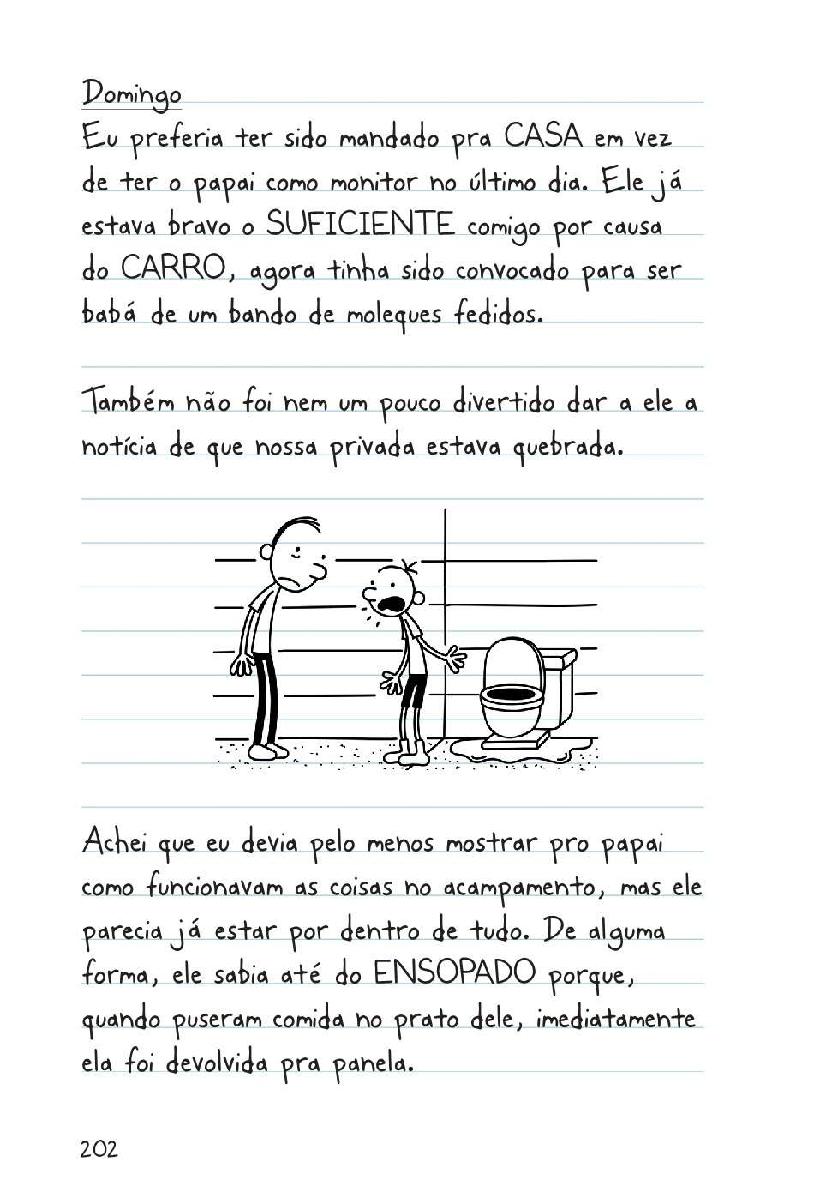 Domingo
Eu preferia ter sido mandado pra CASA em vez
de ter o papai como monitor no último dia. Ele já
estava bravo o SUFICIENTE comigo por causa
do CARRO, agora tinha sido convocado para ser
babá de um bando de moleques fedidos.
Também não foi nem um pouco divertido dar a ele a
notícia de que nossa privada estava quebrada.
Achei que eu devia pelo menos mostrar pro papai
como funcionavam as coisas no acampamento, mas ele
parecia já estar por dentro de tudo. De alguma
forma, ele sabia até do ENSOPADO porque,
quando puseram comida no prato dele, imediatamente
ela foi devolvida pra panela.
202